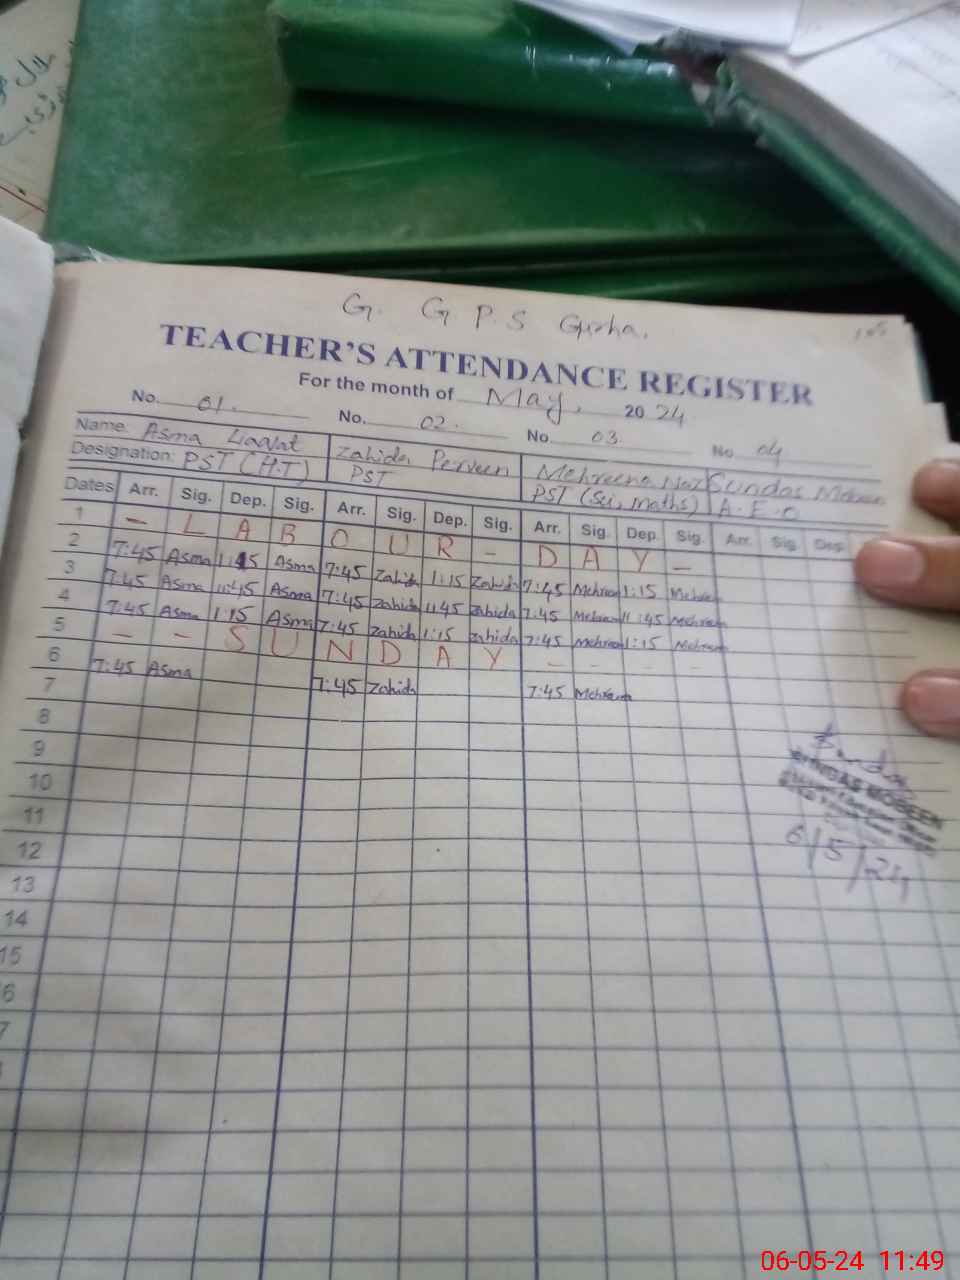 G. G P. S Gurha.
TEACHER'S ATTENDANCE REGISTER
For the month of May, 2024
No. 01. No. 02. No 03 No 04
Name: Asma Liaqat Zahida Perveen Mehreena Naz Sundas Mobeen
Designation: PST (H.T) PST PST (Sci, maths) A.E.O
Dates Arr. Sig. Dep. Sig. Arr. Sig. Dep. Sig. Arr. Sig. Dep. Sig. Arr. Sig. Dep.
1 – L A B O U R – D A Y –
2 7:45 Asma 1:15 Asma 7:45 Zahida 1:15 Zahida 7:45 Mehreen 1:15 Mehreen
3 7:45 Asma 11:45 Asma 7:45 Zahida 11:45 Zahida 7:45 Mehreen 11:45 Mehreen
4 7:45 Asma 1:15 Asma 7:45 Zahida 1:15 Zahida 7:45 Mehreen 1:15 Mehreen
5 – – S U N D A Y – – – –
6 7:45 Asma 7:45 Zahida 7:45 Mehreen
7
8
9
10
11
12
13
14
15
6
7
Sundas
SUNDAS MOBEEN
6/5/24
06-05-24 11:49